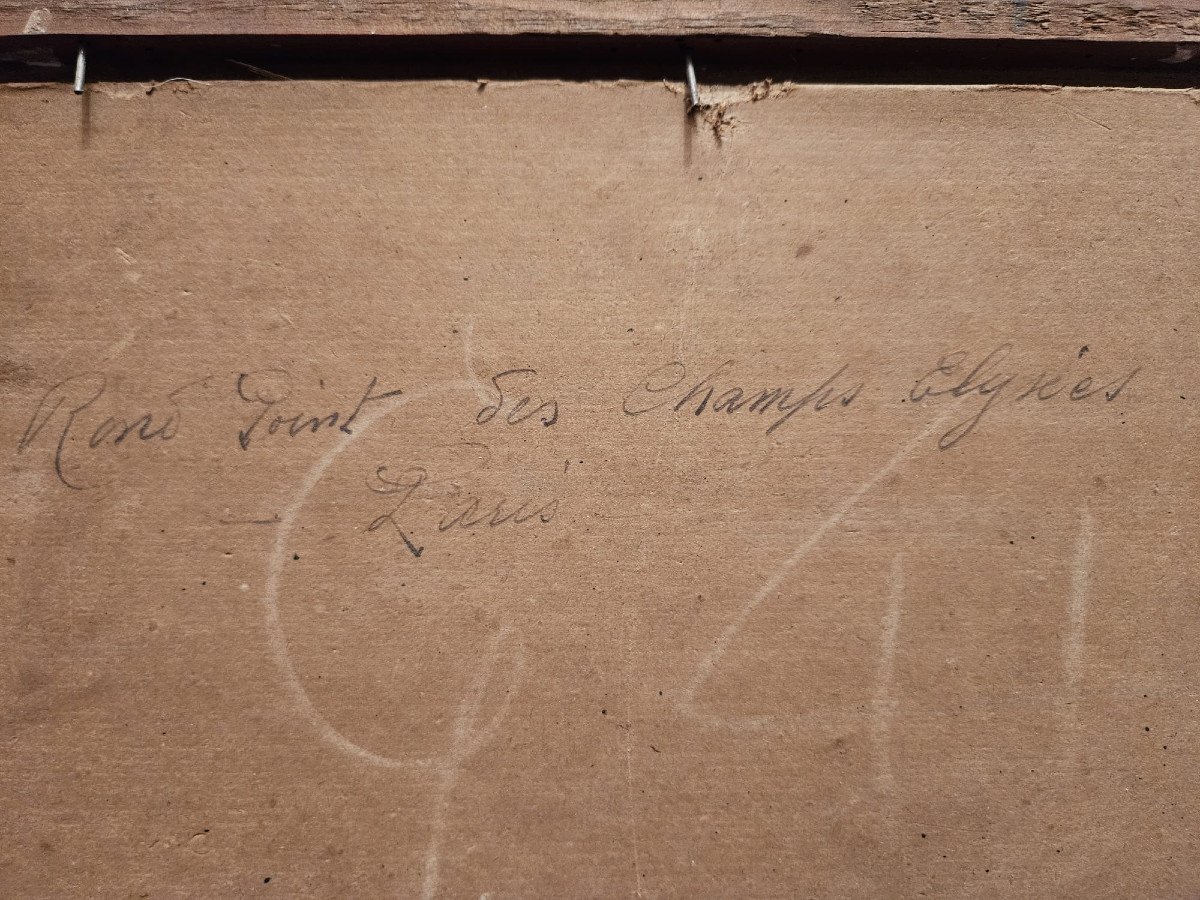 Rond Point des Champs Elysées
— Paris —
G 41